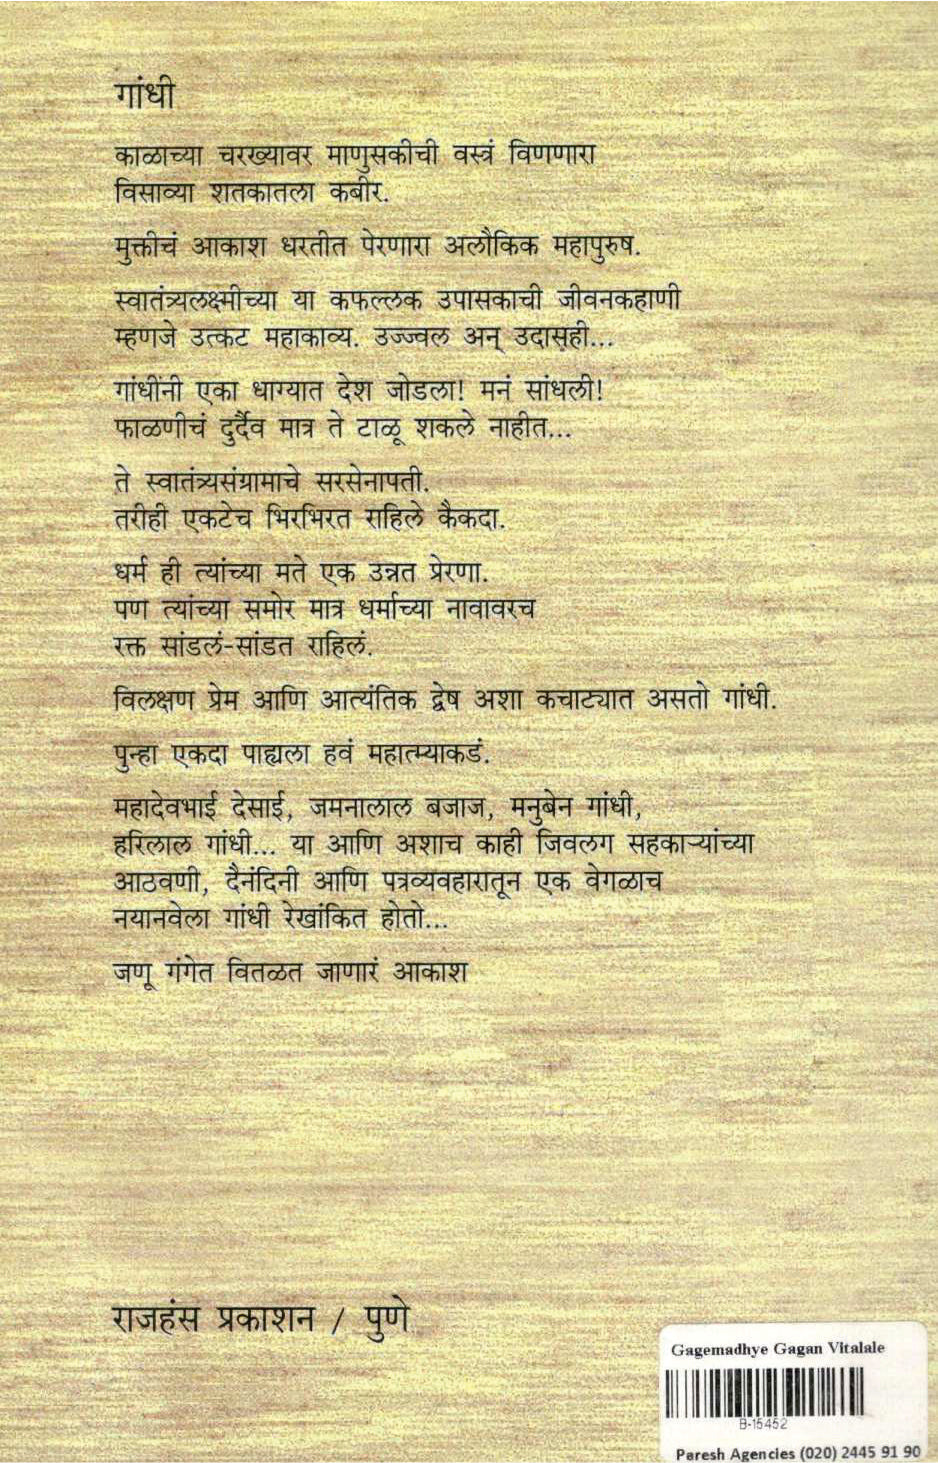 गांधी
काळाच्या चरख्यावर माणुसकीची वस्त्रं विणणारा
विसाव्या शतकातला कबीर.
मुक्तीचं आकाश धरतीत पेरणारा अलौकिक महापुरुष.
स्वातंत्र्यलक्ष्मीच्या या कफल्लक उपासकाची जीवनकहाणी
म्हणजे उत्कट महाकाव्य. उज्ज्वल अन् उदासही...
गांधींनी एका धाग्यात देश जोडला! मनं सांधली!
फाळणीचं दुर्दैव मात्र ते टाळू शकले नाहीत...
ते स्वातंत्र्यसंग्रामाचे सरसेनापती.
तरीही एकटेच भिरभिरत राहिले कैकदा.
धर्म ही त्यांच्या मते एक उन्नत प्रेरणा.
पण त्यांच्या समोर मात्र धर्माच्या नावावरच
रक्त सांडलं-सांडत राहिलं.
विलक्षण प्रेम आणि आत्यंतिक द्वेष अशा कचाट्यात असतो गांधी.
पुन्हा एकदा पाह्यला हवं महात्म्याकडं.
महादेवभाई देसाई, जमनालाल बजाज, मनुबेन गांधी,
हरिलाल गांधी... या आणि अशाच काही जिवलग सहकाऱ्यांच्या
आठवणी, दैनंदिनी आणि पत्रव्यवहारातून एक वेगळाच
नयानवेला गांधी रेखांकित होतो...
जणू गंगेत वितळत जाणारं आकाश
राजहंस प्रकाशन / पुणे
Gagemadhye Gagan Vitalale
B-15452
Paresh Agencies (020) 2445 91 90